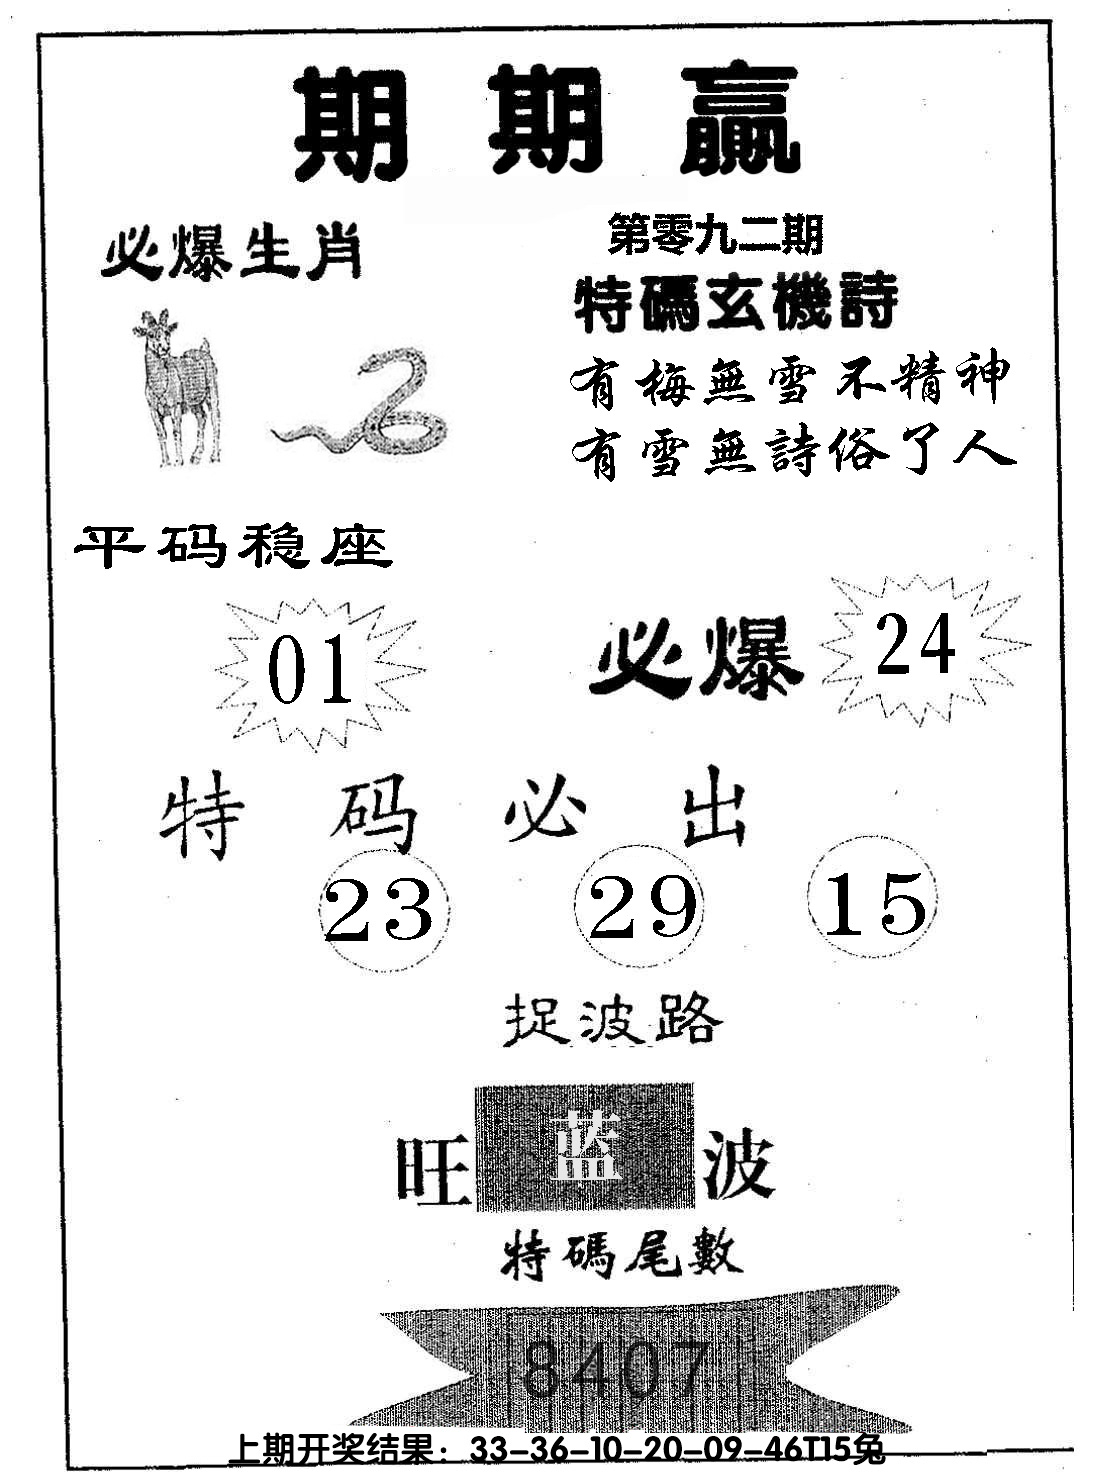 期期贏
必爆生肖
第零九二期
特碼玄機詩
有梅無雪不精神
有雪無詩俗了人
平码稳座
01
必爆 24
特码必出
23 29 15
捉波路
旺 蓝 波
特碼尾數
8407
上期开奖结果：33-36-10-20-09-46T15兔